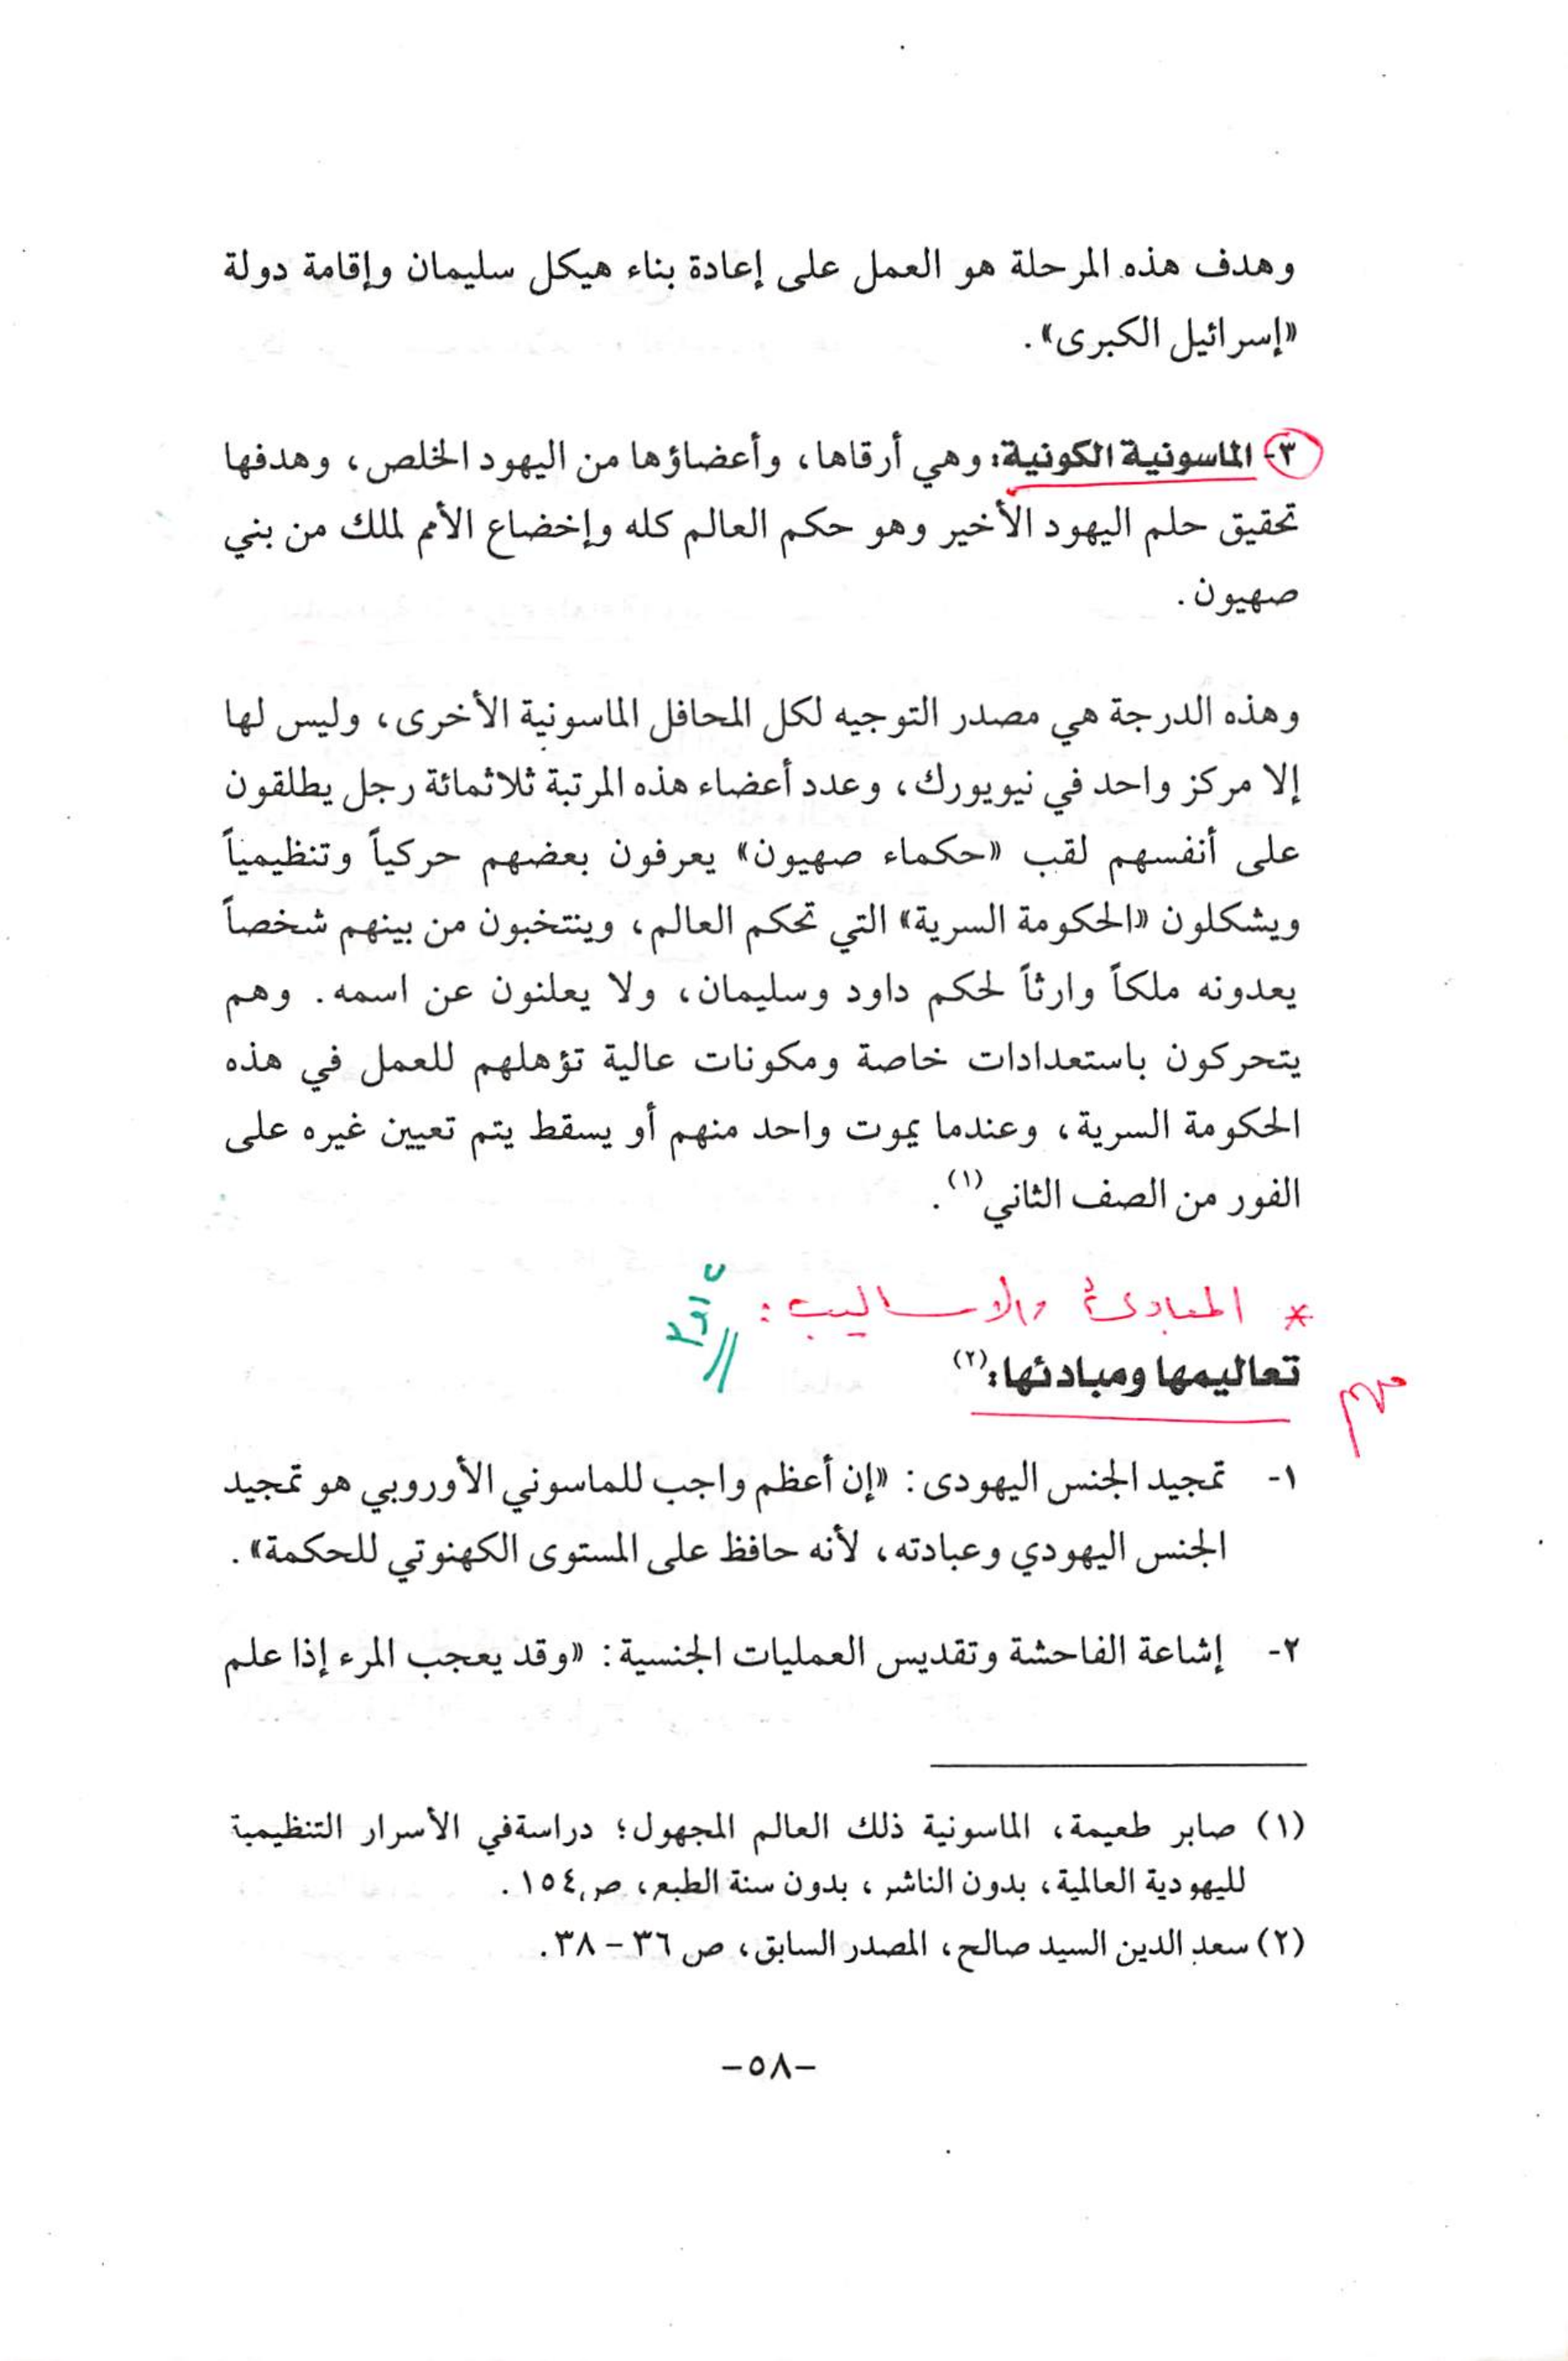 وهدف هذه المرحلة هو العمل على إعادة بناء هيكل سليمان وإقامة دولة
«إسرائيل الكبرى».
٣- الماسونية الكونية: وهي أرقاها، وأعضاؤها من اليهود الخلص، وهدفها
تحقيق حلم اليهود الأخير وهو حكم العالم كله وإخضاع الأمم لملك من بني
صهيون.
وهذه الدرجة هي مصدر التوجيه لكل المحافل الماسونية الأخرى، وليس لها
إلا مركز واحد في نيويورك، وعدد أعضاء هذه المرتبة ثلاثمائة رجل يطلقون
على أنفسهم لقب «حكماء صهيون» يعرفون بعضهم حركياً وتنظيمياً
ويشكلون «الحكومة السرية» التي تحكم العالم، وينتخبون من بينهم شخصاً
يعدونه ملكاً وارثاً لحكم داود وسليمان، ولا يعلنون عن اسمه. وهم
يتحركون باستعدادات خاصة ومكونات عالية تؤهلهم للعمل في هذه
الحكومة السرية، وعندما يموت واحد منهم أو يسقط يتم تعيين غيره على
الفور من الصف الثاني(١).
* المبادئ والاساليب:
تعاليمها ومبادئها:(٢)
مهم
١- تمجيد الجنس اليهودى: «إن أعظم واجب للماسوني الأوروبي هو تمجيد
الجنس اليهودي وعبادته، لأنه حافظ على المستوى الكهنوتي للحكمة».
٢- إشاعة الفاحشة وتقديس العمليات الجنسية: «وقد يعجب المرء إذا علم
(١) صابر طعيمة، الماسونية ذلك العالم المجهول؛ دراسةفي الأسرار التنظيمية
لليهودية العالمية، بدون الناشر، بدون سنة الطبع، ص١٥٤.
(٢) سعد الدين السيد صالح، المصدر السابق، ص ٣٦ – ٣٨.
–٥٨–